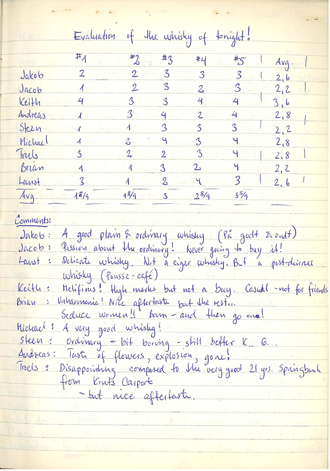 Evaluation of the whisky of tonight!
#1 #2 #3 #4 #5 | Avg. |
Jakob 2 2 3 3 3 | 2,6
Jacob 1 2 3 2 3 | 2,2 |
Keith 4 3 3 4 4 | 3,6
Andreas 1 3 4 2 4 | 2,8
Steen 1 1 3 3 3 | 2,2
Michael 1 2 4 3 4 | 2,8
Troels 3 2 2 3 4 | 2,8 |
Brian 1 1 3 2 4 | 2,2
Laust 3 1 2 4 3 | 2,6 |
Avg 3
Comments:
Jakob: A good plain & ordinary whisky (På godt & ondt)
Jacob: Passion about the ordinary! Never going to buy it!
Laust: Delicate whisky. Not a cigar whisky. But a post-dinner
whisky (Pousse-café)
Keith: Melifirus! High marks but not a buy. Casual - not for friends
Brian: Unharmonic! Nice aftertaste but the rest...
Seduce women!! and then go
Michael: A very good whisky!
Steen: Ordinary - bit boring - still better K... G...
Andreas: Taste of flowers, explosion, gone!
Troels: Disappointing compared to the very good 21 yrs. Springbank
from Knuts Carport
- but nice aftertaste.